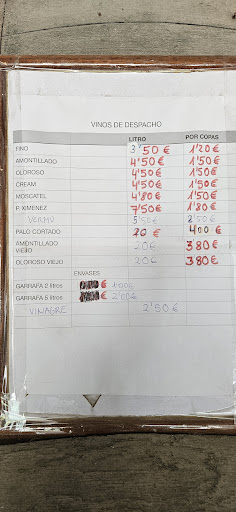 VINOS DE DESPACHO
LITRO POR COPAS
FINO 3'50 € 1'20 €
AMONTILLADO 4'50 € 1'50 €
OLOROSO 4'50 € 1'50 €
CREAM 4'50 € 1'50 €
MOSCATEL 4'80 € 1'50 €
P. XIMENEZ 7'50 € 1'80 €
VERMU 5'50 € 2'50 €
PALO CORTADO 20 € 4'00 €
AMONTILLADO VIEJO 20 € 3'80 €
OLOROSO VIEJO 20 € 3'80 €
ENVASES
GARRAFA 2 litros €
GARRAFA 5 litros € 2'00 €
VINAGRE 2'50 €